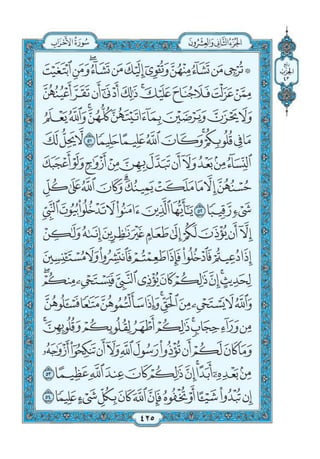 الجزء الثاني والعشرون
سورة الأحزاب
۞ تُرْجِي مَن تَشَآءُ مِنْهُنَّ وَتُـْٔوِيٓ إِلَيْكَ مَن تَشَآءُ ۖ وَمَنِ ٱبْتَغَيْتَ
مِمَّنْ عَزَلْتَ فَلَا جُنَاحَ عَلَيْكَ ۚ ذَٰلِكَ أَدْنَىٰٓ أَن تَقَرَّ أَعْيُنُهُنَّ
وَلَا يَحْزَنَّ وَيَرْضَيْنَ بِمَآ ءَاتَيْتَهُنَّ كُلُّهُنَّ ۚ وَٱللَّهُ يَعْلَمُ
مَا فِي قُلُوبِكُمْ ۚ وَكَانَ ٱللَّهُ عَلِيمًا حَلِيمًا ٥١ لَّا يَحِلُّ لَكَ
ٱلنِّسَآءُ مِنۢ بَعْدُ وَلَآ أَن تَبَدَّلَ بِهِنَّ مِنْ أَزْوَٰجٍ وَلَوْ أَعْجَبَكَ
حُسْنُهُنَّ إِلَّا مَا مَلَكَتْ يَمِينُكَ ۗ وَكَانَ ٱللَّهُ عَلَىٰ كُلِّ
شَيْءٍ رَّقِيبًا ٥٢ يَٰٓأَيُّهَا ٱلَّذِينَ ءَامَنُوا۟ لَا تَدْخُلُوا۟ بُيُوتَ ٱلنَّبِيِّ
إِلَّآ أَن يُؤْذَنَ لَكُمْ إِلَىٰ طَعَامٍ غَيْرَ نَٰظِرِينَ إِنَىٰهُ وَلَٰكِنْ
إِذَا دُعِيتُمْ فَٱدْخُلُوا۟ فَإِذَا طَعِمْتُمْ فَٱنتَشِرُوا۟ وَلَا مُسْتَـْٔنِسِينَ
لِحَدِيثٍ ۚ إِنَّ ذَٰلِكُمْ كَانَ يُؤْذِي ٱلنَّبِيَّ فَيَسْتَحْيِۦ مِنكُمْ ۖ
وَٱللَّهُ لَا يَسْتَحْيِۦ مِنَ ٱلْحَقِّ ۚ وَإِذَا سَأَلْتُمُوهُنَّ مَتَٰعًا فَسْـَٔلُوهُنَّ
مِن وَرَآءِ حِجَابٍ ۚ ذَٰلِكُمْ أَطْهَرُ لِقُلُوبِكُمْ وَقُلُوبِهِنَّ ۚ
وَمَا كَانَ لَكُمْ أَن تُؤْذُوا۟ رَسُولَ ٱللَّهِ وَلَآ أَن تَنكِحُوٓا۟ أَزْوَٰجَهُۥ
مِنۢ بَعْدِهِۦٓ أَبَدًا ۚ إِنَّ ذَٰلِكُمْ كَانَ عِندَ ٱللَّهِ عَظِيمًا ٥٣
إِن تُبْدُوا۟ شَيْـًٔا أَوْ تُخْفُوهُ فَإِنَّ ٱللَّهَ كَانَ بِكُلِّ شَيْءٍ عَلِيمًا ٥٤
٤٢٥